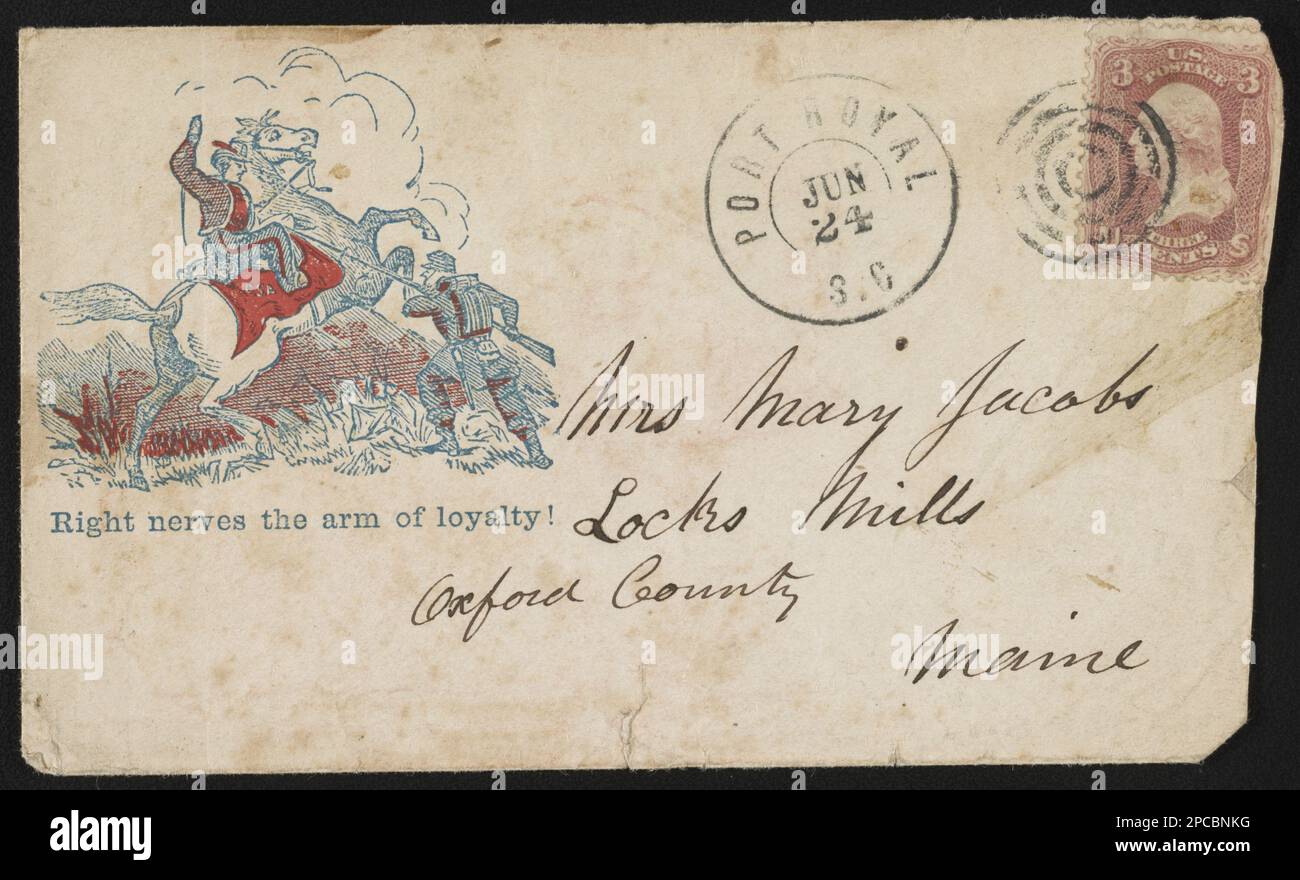 U.S.
POSTAGE
3 3
THREE
CENTS
PORT ROYAL
JUN
24
S.C
Right nerves the arm of loyalty!
Mrs Mary Jacobs
Locks Mills
Oxford County
Maine
alamy
Image ID: 2PCBNKG
www.alamy.com